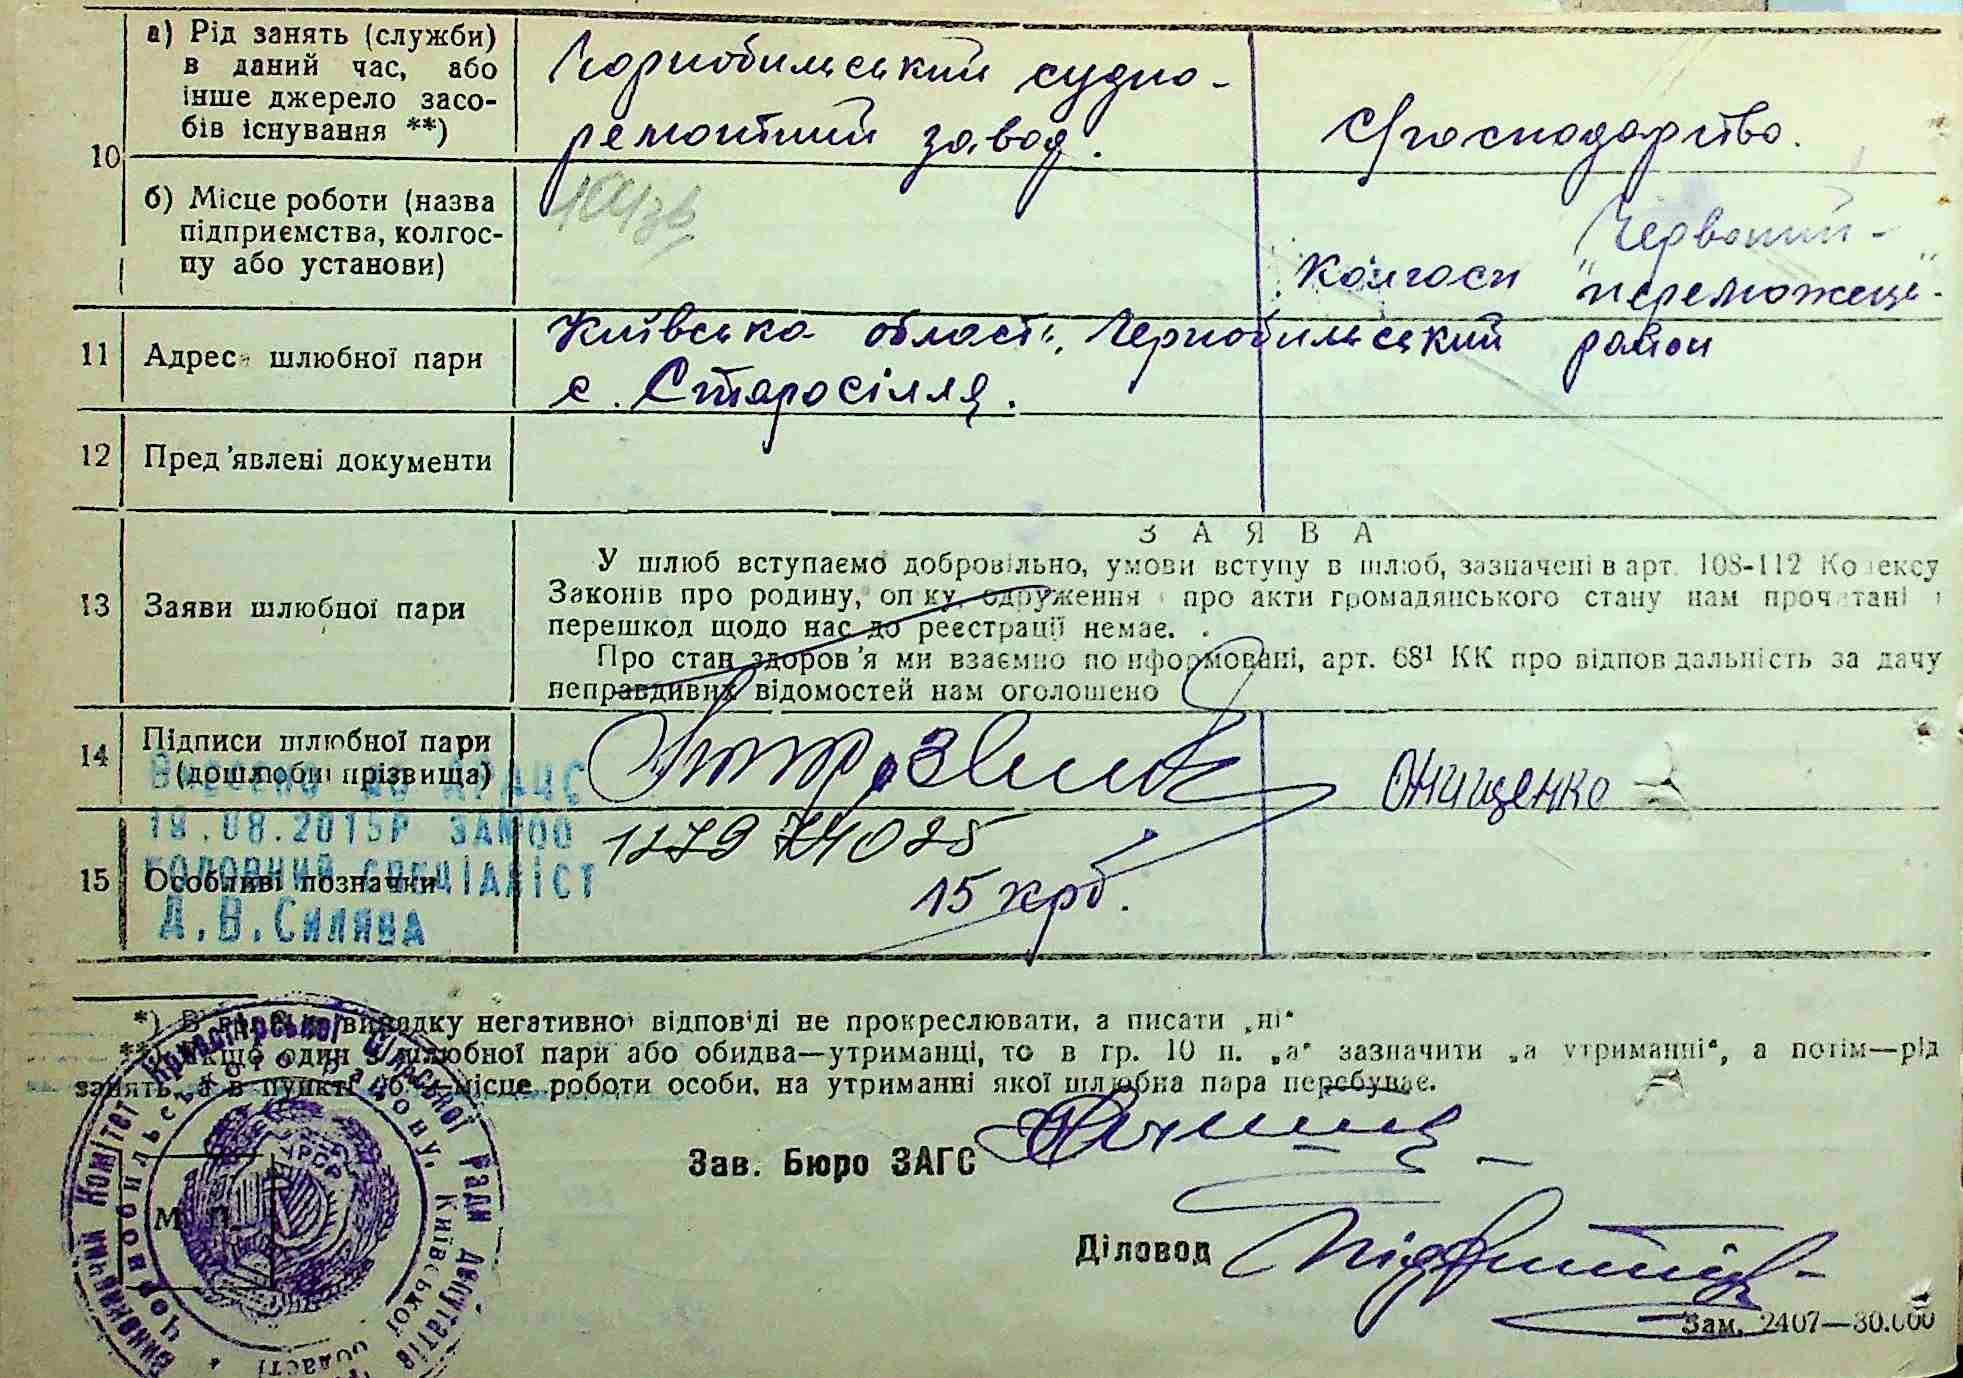 10
а) Рід занять (служби)
в даний час, або
інше джерело засо-
бів існування **)
Чорнобильський судно-
ремонтний завод.
с/господарство.
б) Місце роботи (назва
підприємства, колгос-
пу або установи)
Колгосп "Червоний-
переможець".
11
Адреса шлюбної пари
Київська область, Чернобильський район
с. Старосілля.
12
Пред'явлені документи
13
Заяви шлюбної пари
ЗАЯВА
У шлюб вступаємо добровільно, умови вступу в шлюб, зазначені в арт. 108-112 Кодексу
Законів про родину, опіку, одруження і про акти громадянського стану нам прочитані і
перешкод щодо нас до реєстрації немає.
Про стан здоров'я ми взаємно поінформовані, арт. 68¹ КК про відповідальність за дачу
неправдивих відомостей нам оголошено
14
Підписи шлюбної пари
(дошлюбні прізвища)
Онищенко
Внесено до ДРАЦС
19.08.2015р
головний спеціаліст
Д.В.Силява
15
Особливі позначки
15 крб.
*) В гр. 8 у випадку негативної відповіді не прокреслювати, а писати „ні“
**) Якщо один з шлюбної пари або обидва—утриманці, то в гр. 10 п. „а“ зазначити „а утриманні“, а потім—рід
занять, а в пункті „б“—місце роботи особи, на утриманні якої шлюбна пара перебуває.
Зав. Бюро ЗАГС
М. П.
Діловод
Виконавчий Комітет Сільської Ради депутатів
Чорнобильського району, Київської області
УРСР
Зам. 2407—30.000